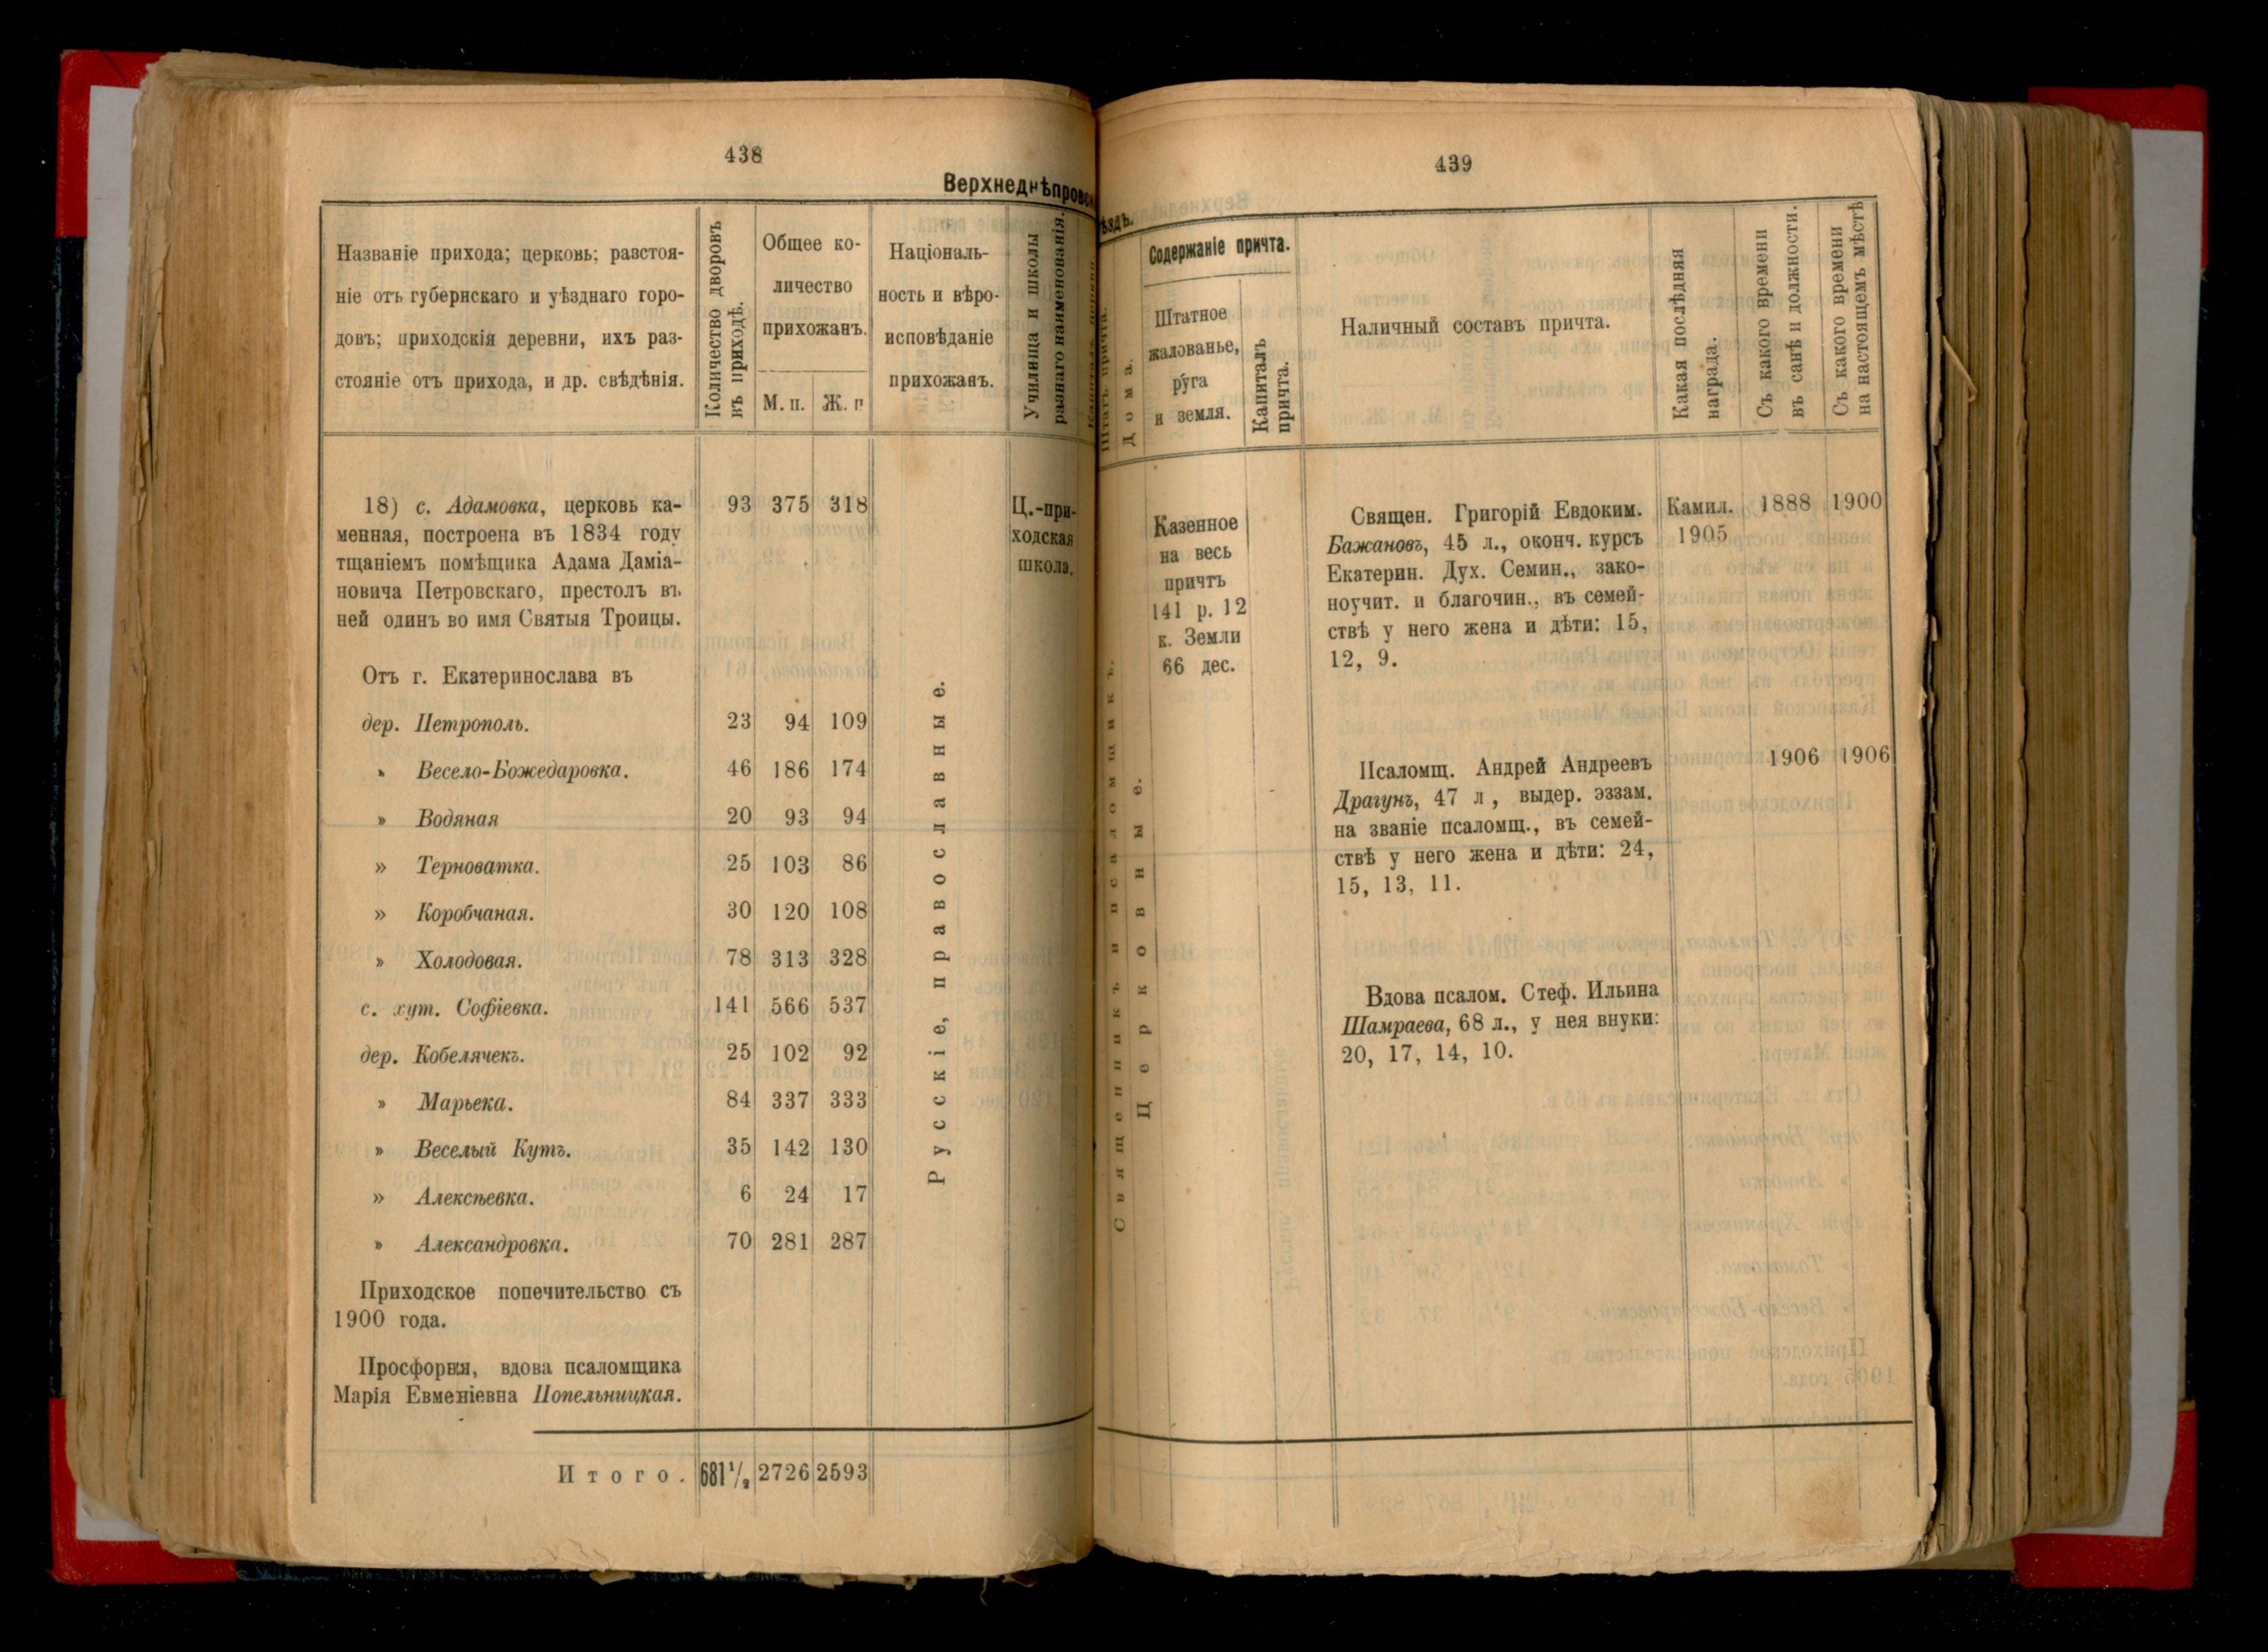 438
Верхнеднѣпровск
Названіе прихода; церковь; разстоя-
ніе отъ губернскаго и уѣзднаго горо-
довъ; приходскія деревни, ихъ раз-
стояніе отъ прихода, и др. свѣдѣнія.
Количество дворовъ
въ приходѣ.
Общее ко-
личество
прихожанъ.
М. п. Ж. п
Національ-
ность и вѣро-
исповѣданіе
прихожанъ.
Училища и школы
разнаго наименованія.
18) с. Адамовка, церковь ка- 93 375 318 Ц.-при-
менная, построена въ 1834 году ходская
тщаніемъ помѣщика Адама Даміа- школа.
новича Петровскаго, престолъ въ
ней одинъ во имя Святыя Троицы.
Отъ г. Екатеринослава въ
дер. Петрополь. 23 94 109
» Весело-Божедаровка. 46 186 174
» Водяная 20 93 94
» Терноватка. 25 103 86
» Коробчаная. 30 120 108
» Холодовая. 78 313 328
с. хут. Софіевка. 141 566 537
дер. Кобелячекъ. 25 102 92
» Марьека. 84 337 333
» Веселый Кутъ. 35 142 130
» Алексѣевка. 6 24 17
» Александровка. 70 281 287
Русскіе, православные.
Приходское попечительство съ
1900 года.
Просфорня, вдова псаломщика
Марія Евменіевна Попельницкая.
Итого. 681½ 2726 2593
439
ѣздъ.
Штатъ причта.
Дома.
Содержаніе причта.
Штатное
жалованье,
руга
и земля.
Капиталъ
причта.
Наличный составъ причта.
Какая послѣдняя
награда.
Съ какого времени
въ санѣ и должности.
Съ какого времени
на настоящемъ мѣстѣ
Священникъ и псаломщикъ.
Церковные.
Казенное
на весь
причтъ
141 р. 12
к. Земли
66 дес.
Священ. Григорій Евдоким. Камил. 1888 1900
Бажановъ, 45 л., оконч. курсъ 1905
Екатерин. Дух. Семин., зако-
ноучит. и благочин., въ семей-
ствѣ у него жена и дѣти: 15,
12, 9.
Псаломщ. Андрей Андреевъ 1906 1906
Драгунъ, 47 л , выдер. эззам.
на званіе псаломщ., въ семей-
ствѣ у него жена и дѣти: 24,
15, 13, 11.
Вдова псалом. Стеф. Ильина
Шамраева, 68 л., у нея внуки:
20, 17, 14, 10.